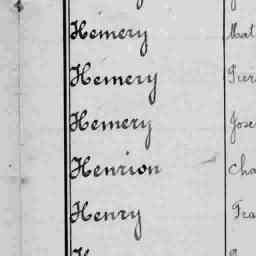 Hemery Mat
Hemery Pier
Hemery Jose
Henrion Cha
Henry Fra